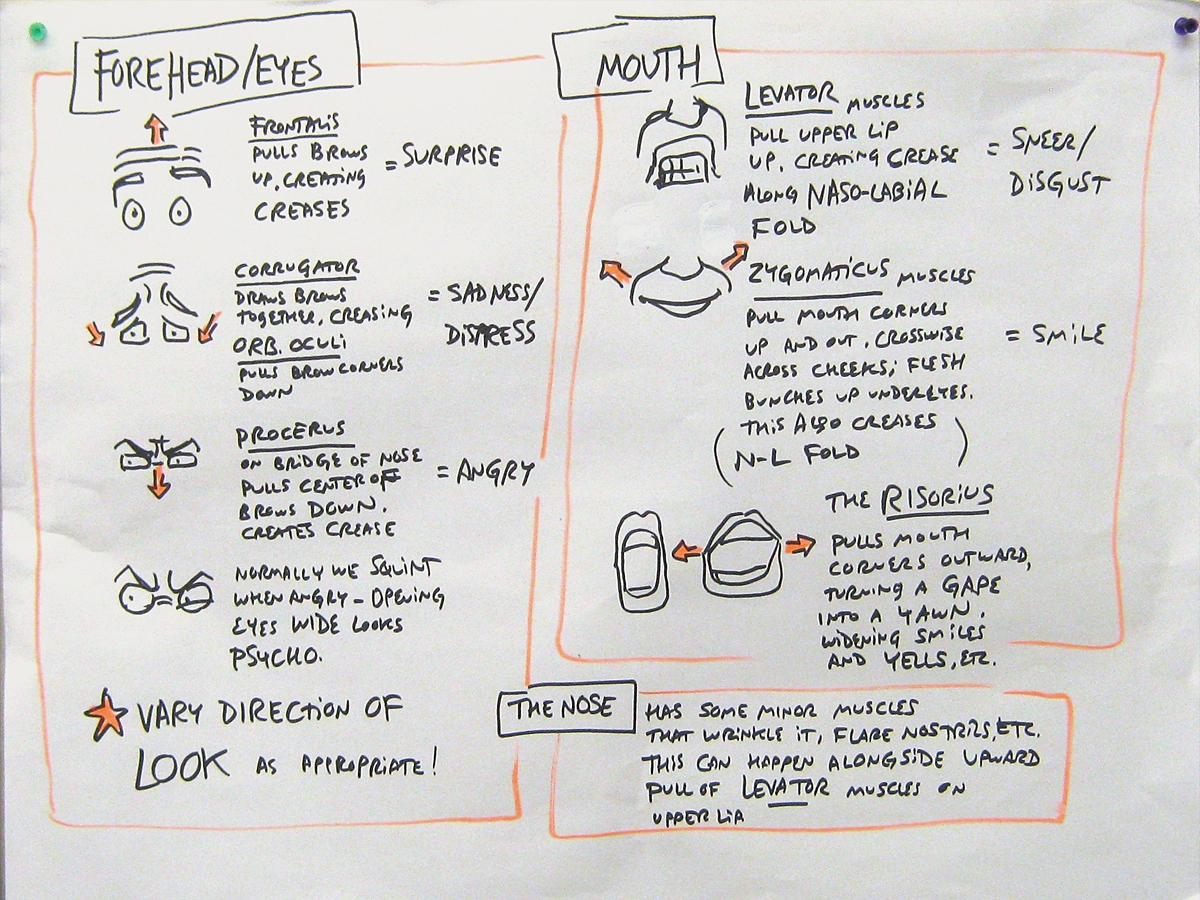 FOREHEAD/EYES
FRONTALIS
PULLS BROWS
UP, CREATING
CREASES
= SURPRISE
CORRUGATOR
DRAWS BROWS
TOGETHER, CREASING
ORB. OCULI
PULLS BROW CORNERS
DOWN
= SADNESS/
DISTRESS
PROCERUS
ON BRIDGE OF NOSE
PULLS CENTER OF
BROWS DOWN.
CREATES CREASE
= ANGRY
NORMALLY WE SQUINT
WHEN ANGRY - OPENING
EYES WIDE LOOKS
PSYCHO.
VARY DIRECTION OF
LOOK AS APPROPRIATE!
MOUTH
LEVATOR MUSCLES
PULL UPPER LIP
UP, CREATING CREASE
ALONG NASO-LABIAL
FOLD
= SNEER/
DISGUST
ZYGOMATICUS MUSCLES
PULL MOUTH CORNERS
UP AND OUT, CROSSWISE
ACROSS CHEEKS; FLESH
BUNCHES UP UNDER EYES.
(THIS ALSO CREASES
N-L FOLD)
= SMILE
THE RISORIUS
PULLS MOUTH
CORNERS OUTWARD,
TURNING A GAPE
INTO A YAWN.
WIDENING SMILES
AND YELLS, ETC.
THE NOSE
HAS SOME MINOR MUSCLES
THAT WRINKLE IT, FLARE NOSTRILS, ETC.
THIS CAN HAPPEN ALONGSIDE UPWARD
PULL OF LEVATOR MUSCLES ON
UPPER LIP